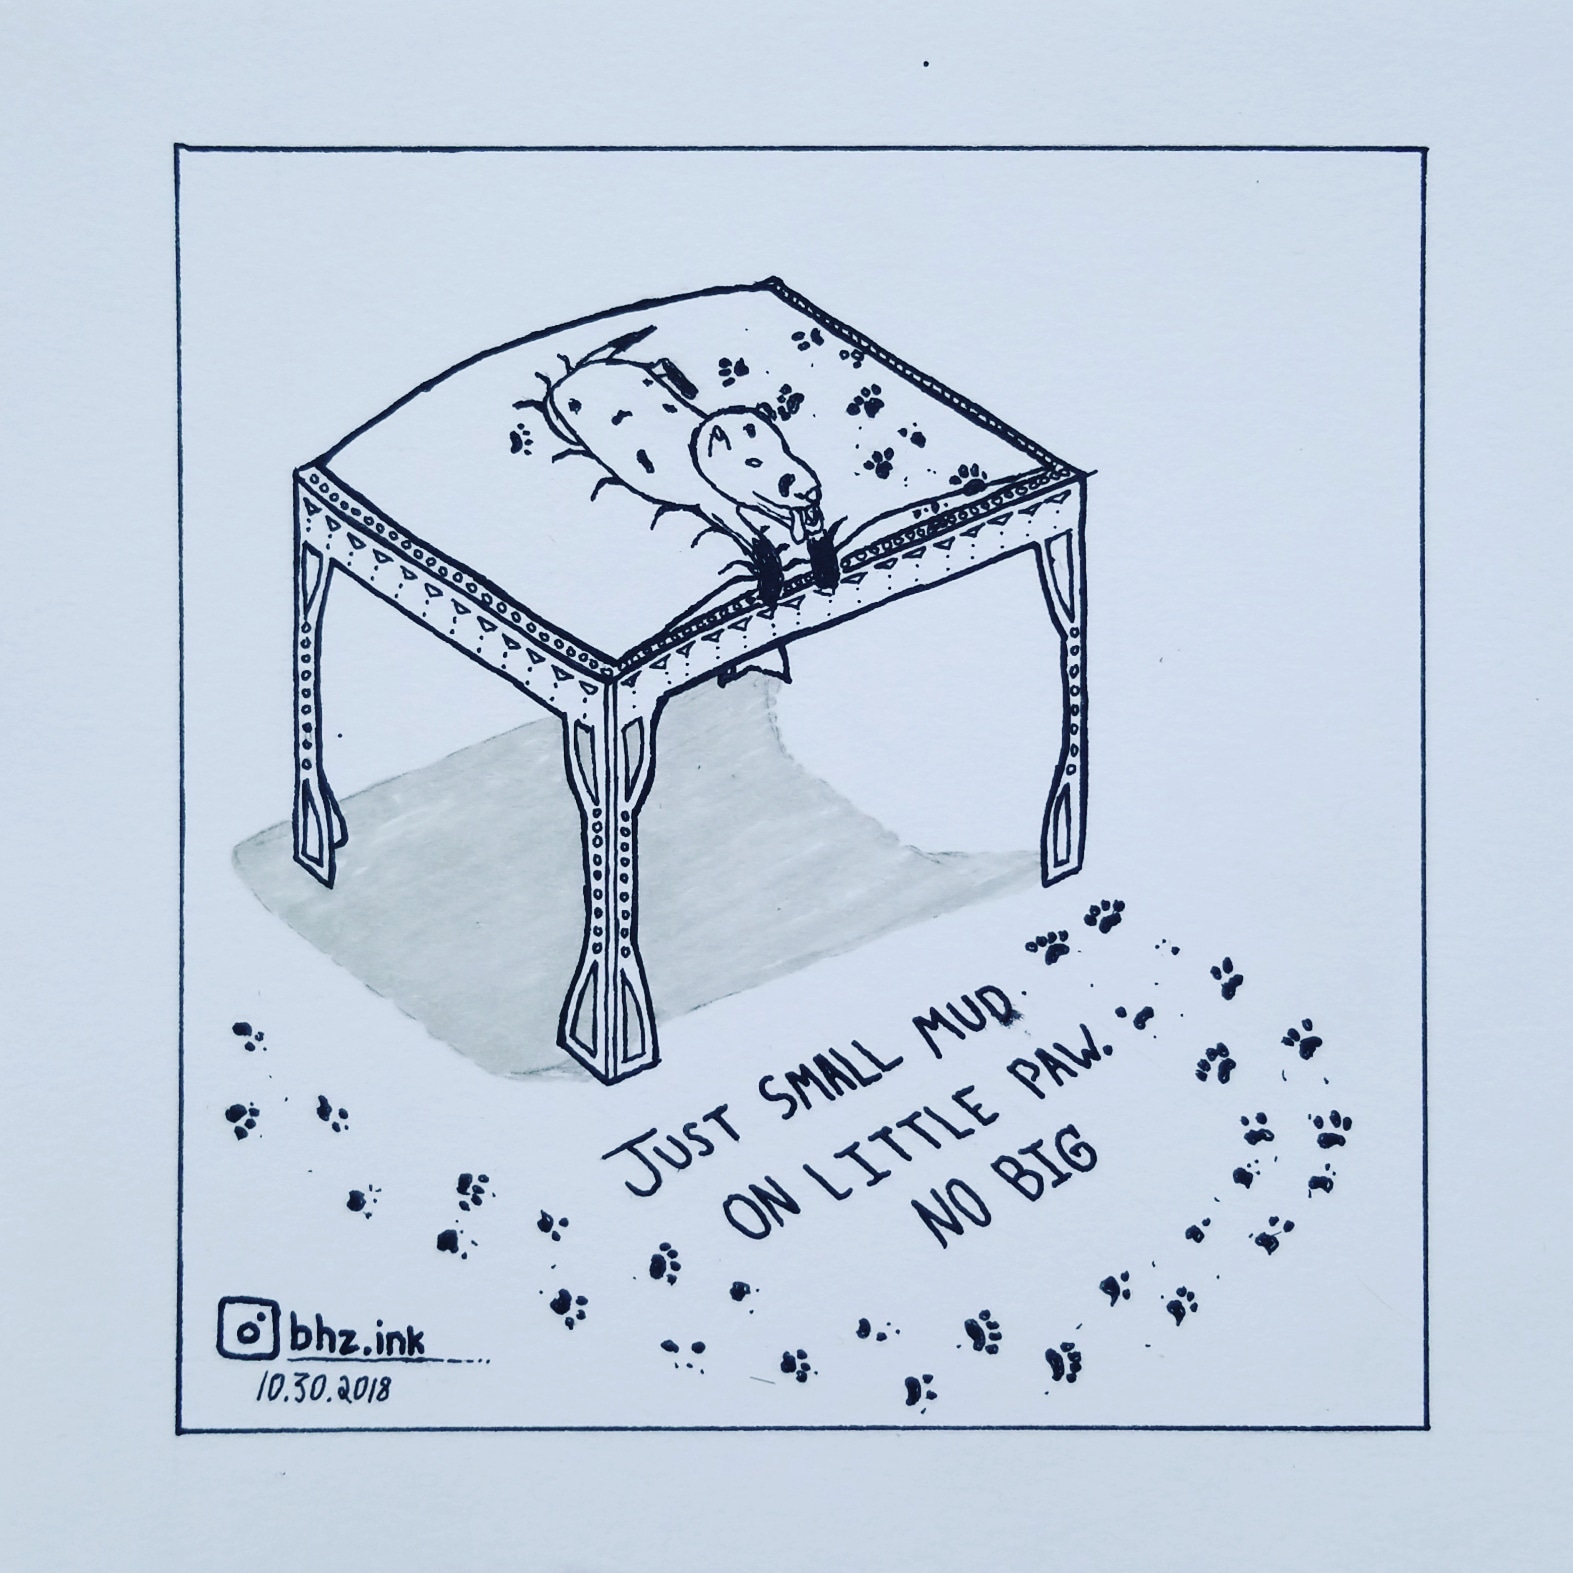 JUST SMALL MUD
ON LITTLE PAW.
NO BIG
bhz.ink
10.30.2018